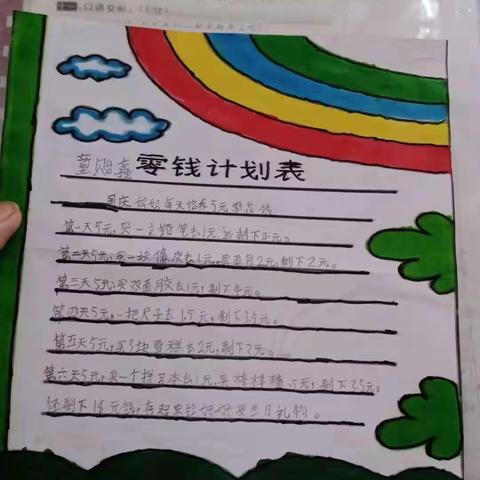 口语交际。
董贻鑫零钱计划表
国庆妈妈每天给我5元零花钱
第一天5元,买一支铅笔去1元,剩下4元。
第二天5元,买一块像皮去1元,买面包2元,剩下2元。
第三天5元,买双面胶去1元,剩下4元。
第四天5元,一把尺子去1.5元,剩下3.5元。
第五天5元,买3块雪糕去2元,剩下3元。
第六天5元,买一个拼习本去1元,买棒棒糖.5元,剩下3.5元。
还剩下18元钱,存起来给妈妈买生日礼物。